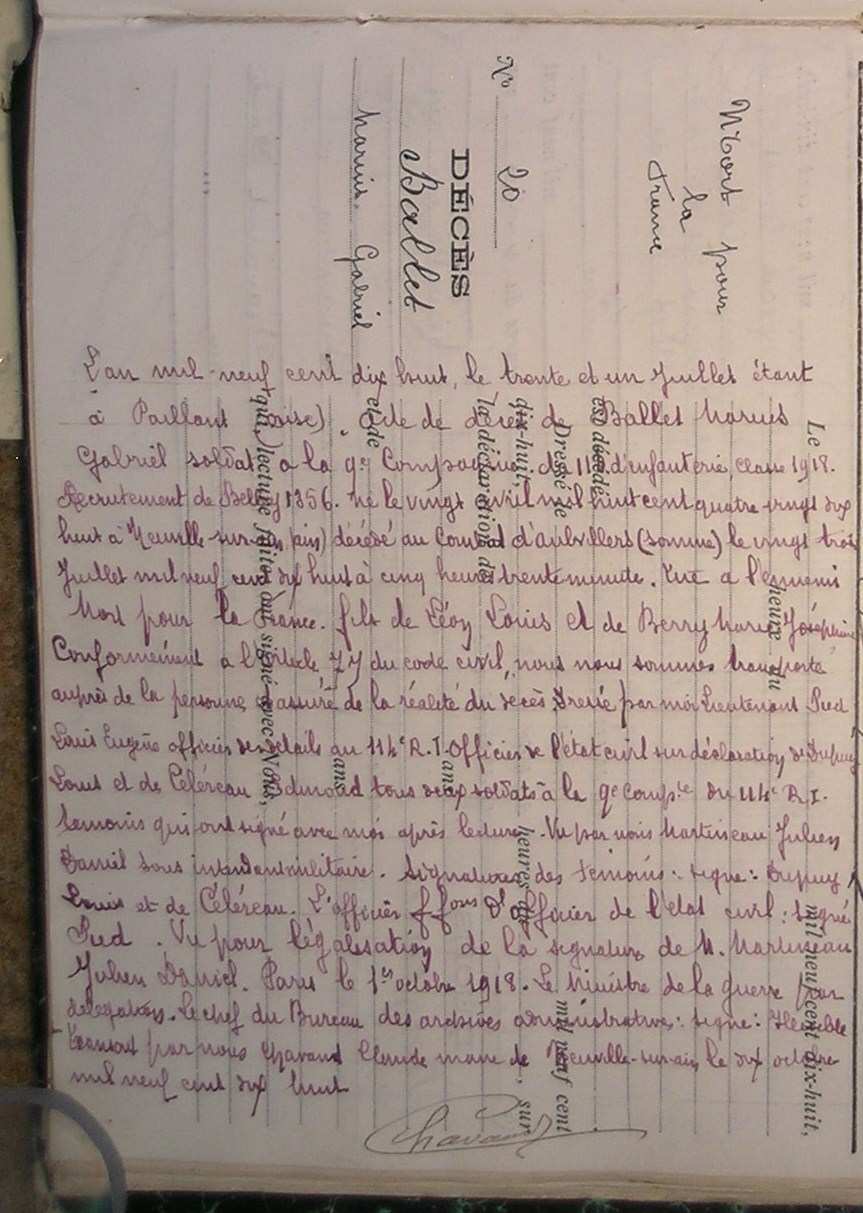 Mort pour
la
France
N° 20
DÉCÈS
Ballet
Marius Gabriel
L'an mil-neuf cent dix huit, le trente et un Juillet étant
à Paillart (oise). Acte de décès de Ballet Marius
Gabriel soldat à la 9e Compagnie du 114 d'infanterie, classe 1918.
Recrutement de Belley 1356. né le vingt avril mil huit cent quatre vingt dix
huit à Neuville-sur-ain (ain) décédé au Combat d'aubvillers (somme) le vingt trois
Juillet mil neuf cent dix huit à cinq heures trente minute. Tué a l'ennemi
Mort pour la France. fils de Léon Louis et de Berry Marie Joséphine
Conformément à l'article 77 du code civil, nous nous sommes transporté
auprès de la personne assuré de la réalité du décès Dressé par moi Lieutenant Pied
Louis Eugène officier des détails au 114e R.I. Officier de l'état civil sur déclaration de Dupuy
Louis et de Céléreau Edmond tous deux soldats à la 9e compie du 114e R.I.
temoins qui ont signé avec moi après lecture. Vu par nous Martineau Julien
Daniel sous intendant militaire. Signatures des temoins: signé: Dupuy
Louis et de Céléreau. L'officier ffons d' Officier de l'etat civil: signé
Pied. Vu pour légalisation de la signature de M. Martineau
Julien Daniel. Paris le 1er octobre 1918. Le Ministre de la guerre par
délégation. Le chef du Bureau des archives administratives: signé:
Transcrit par nous Chavand Claude maire de Neuville-sur-ain, le dix octobre
mil neuf cent dix huit
Chavand
Le
heure du
mil neuf cent dix-huit,
est décédé
Dressé le
heures du
mil neuf cent
dix-huit,
, sur
la déclaration de
ans
et de
ans
qui, lecture faite, ont signé avec Nous,